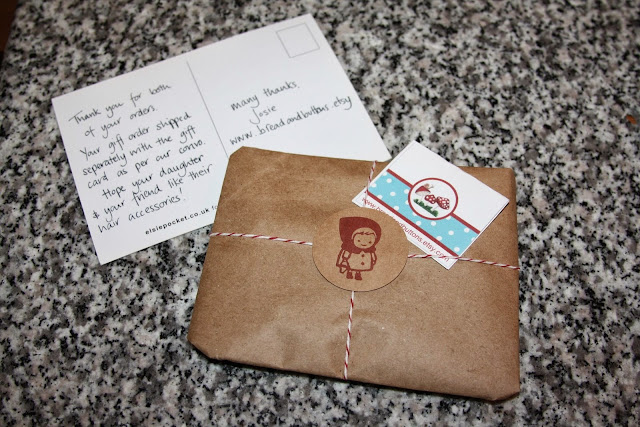 Thank you for both
of your orders.
Your gift order shipped
seperately with the gift
card as per our convo.
Hope your daughter
& your friend like their
hair accessories!
elsiepocket.co.uk
many thanks,
Josie
www.breadandbuttons.etsy
buttons.etsy.com